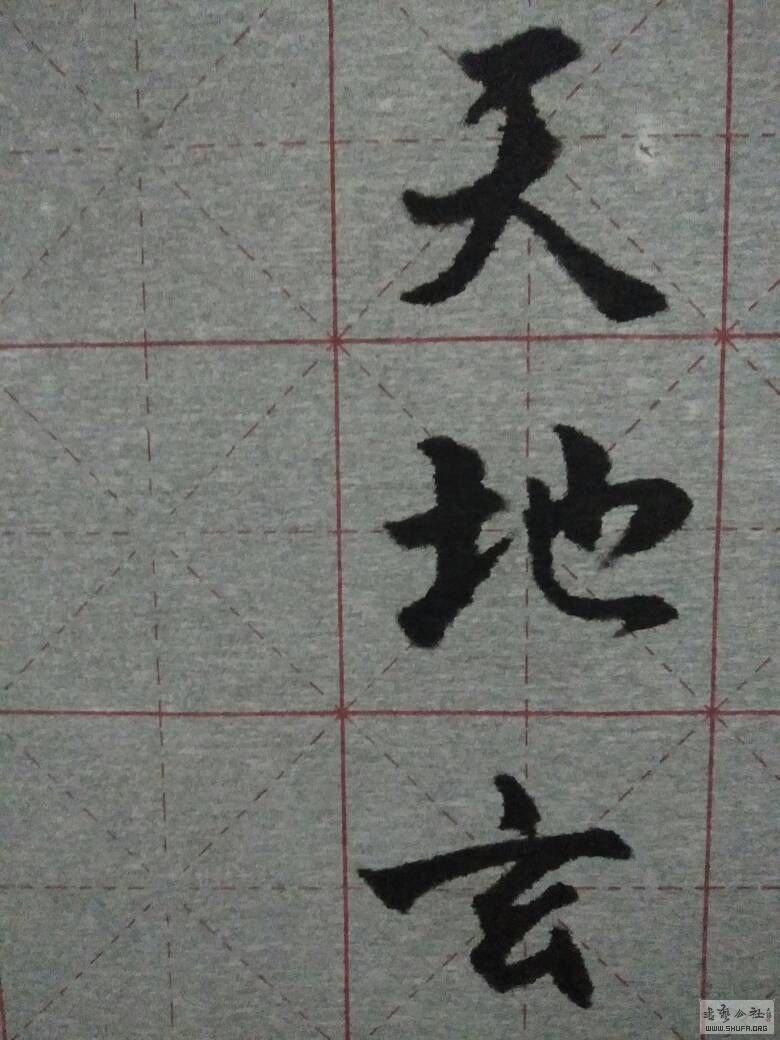 天地玄
书艺公社
WWW.SHUFA.ORG